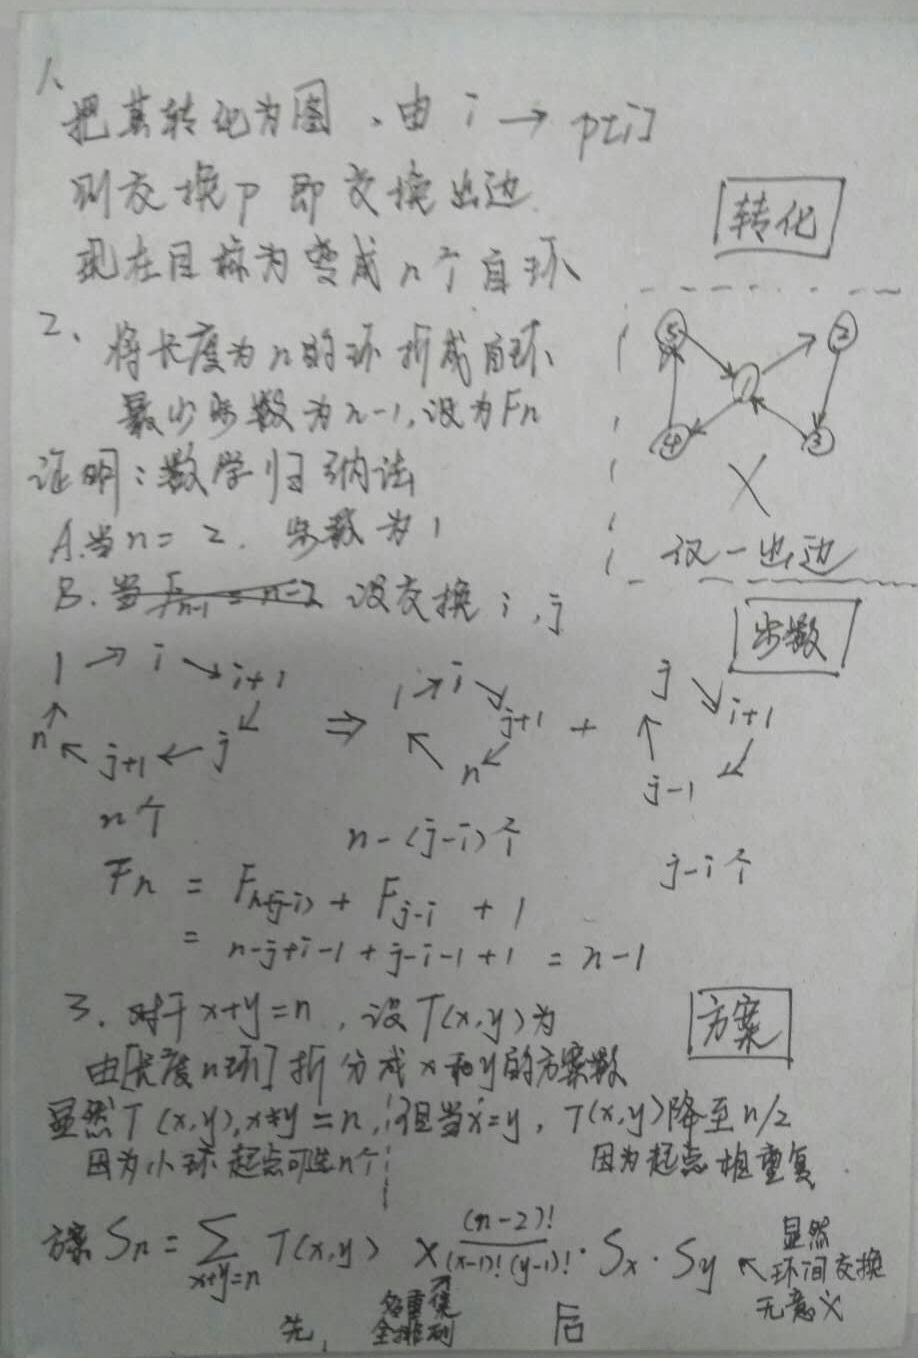 1、
把其转化为图、由 i → p[i]
则交换p 即交换出边.
转化
现在目标为变成n个自环、
2、
将长度为n的环拆成自环
最少步数为n-1,设为Fn
证明:数学归纳法
A.当n=2. 步数为1
B.当F_{n-1}=n-2 设交换i,j
5 2
1
4 3
X
仅一出边
步数
1 → i ↘ i+1
n ↖ j+1 ← j
n个
⇒
1 → i ↘ j+1
n
n-(j-i)个
+
j ↘ i+1
j-1
j-i个
Fn = F_{n-(j-i)} + F_{j-i} + 1
= n-j+i-1 + j-i-1 + 1 = n-1
3. 对于x+y=n,设T(x,y)为
方案
由[长度n环]拆分成x和y的方案数
显然T(x,y),x≠y=n,但当x=y,T(x,y)降至n/2
因为小环起点可选n个
因为起点相重复.
方案 Sn = ∑_{x+y=n} T(x,y) × (n-2)!/((x-1)!(y-1)!) · Sx · Sy
显然
环间交换
无意义
先, 多重集
全排列 后